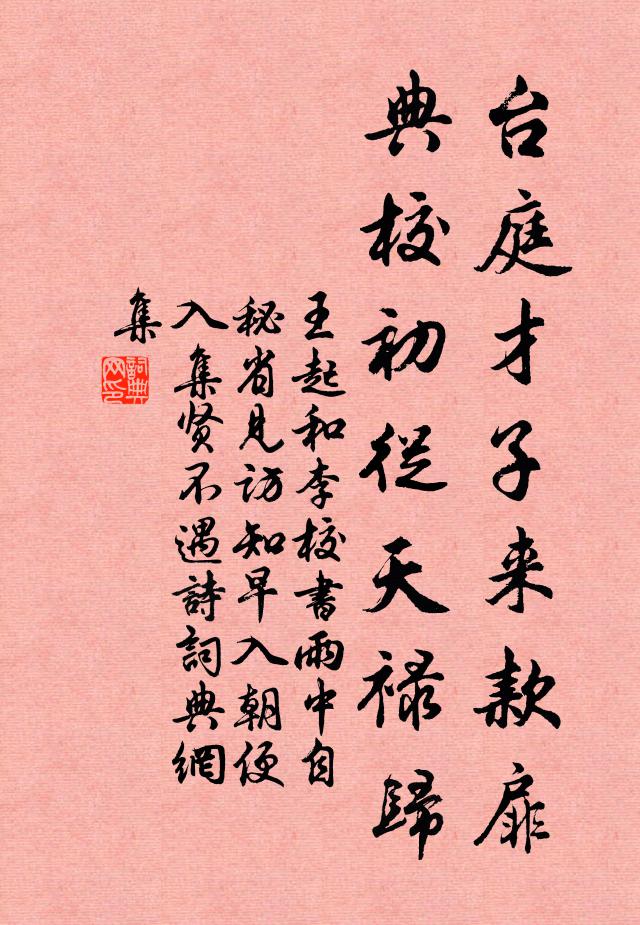 台庭才子来款扉
典校初從天祿歸
王起和李校書雨中自
秘省見訪知早入朝便
入集贤不遇詩詞典網
集
詞典網印